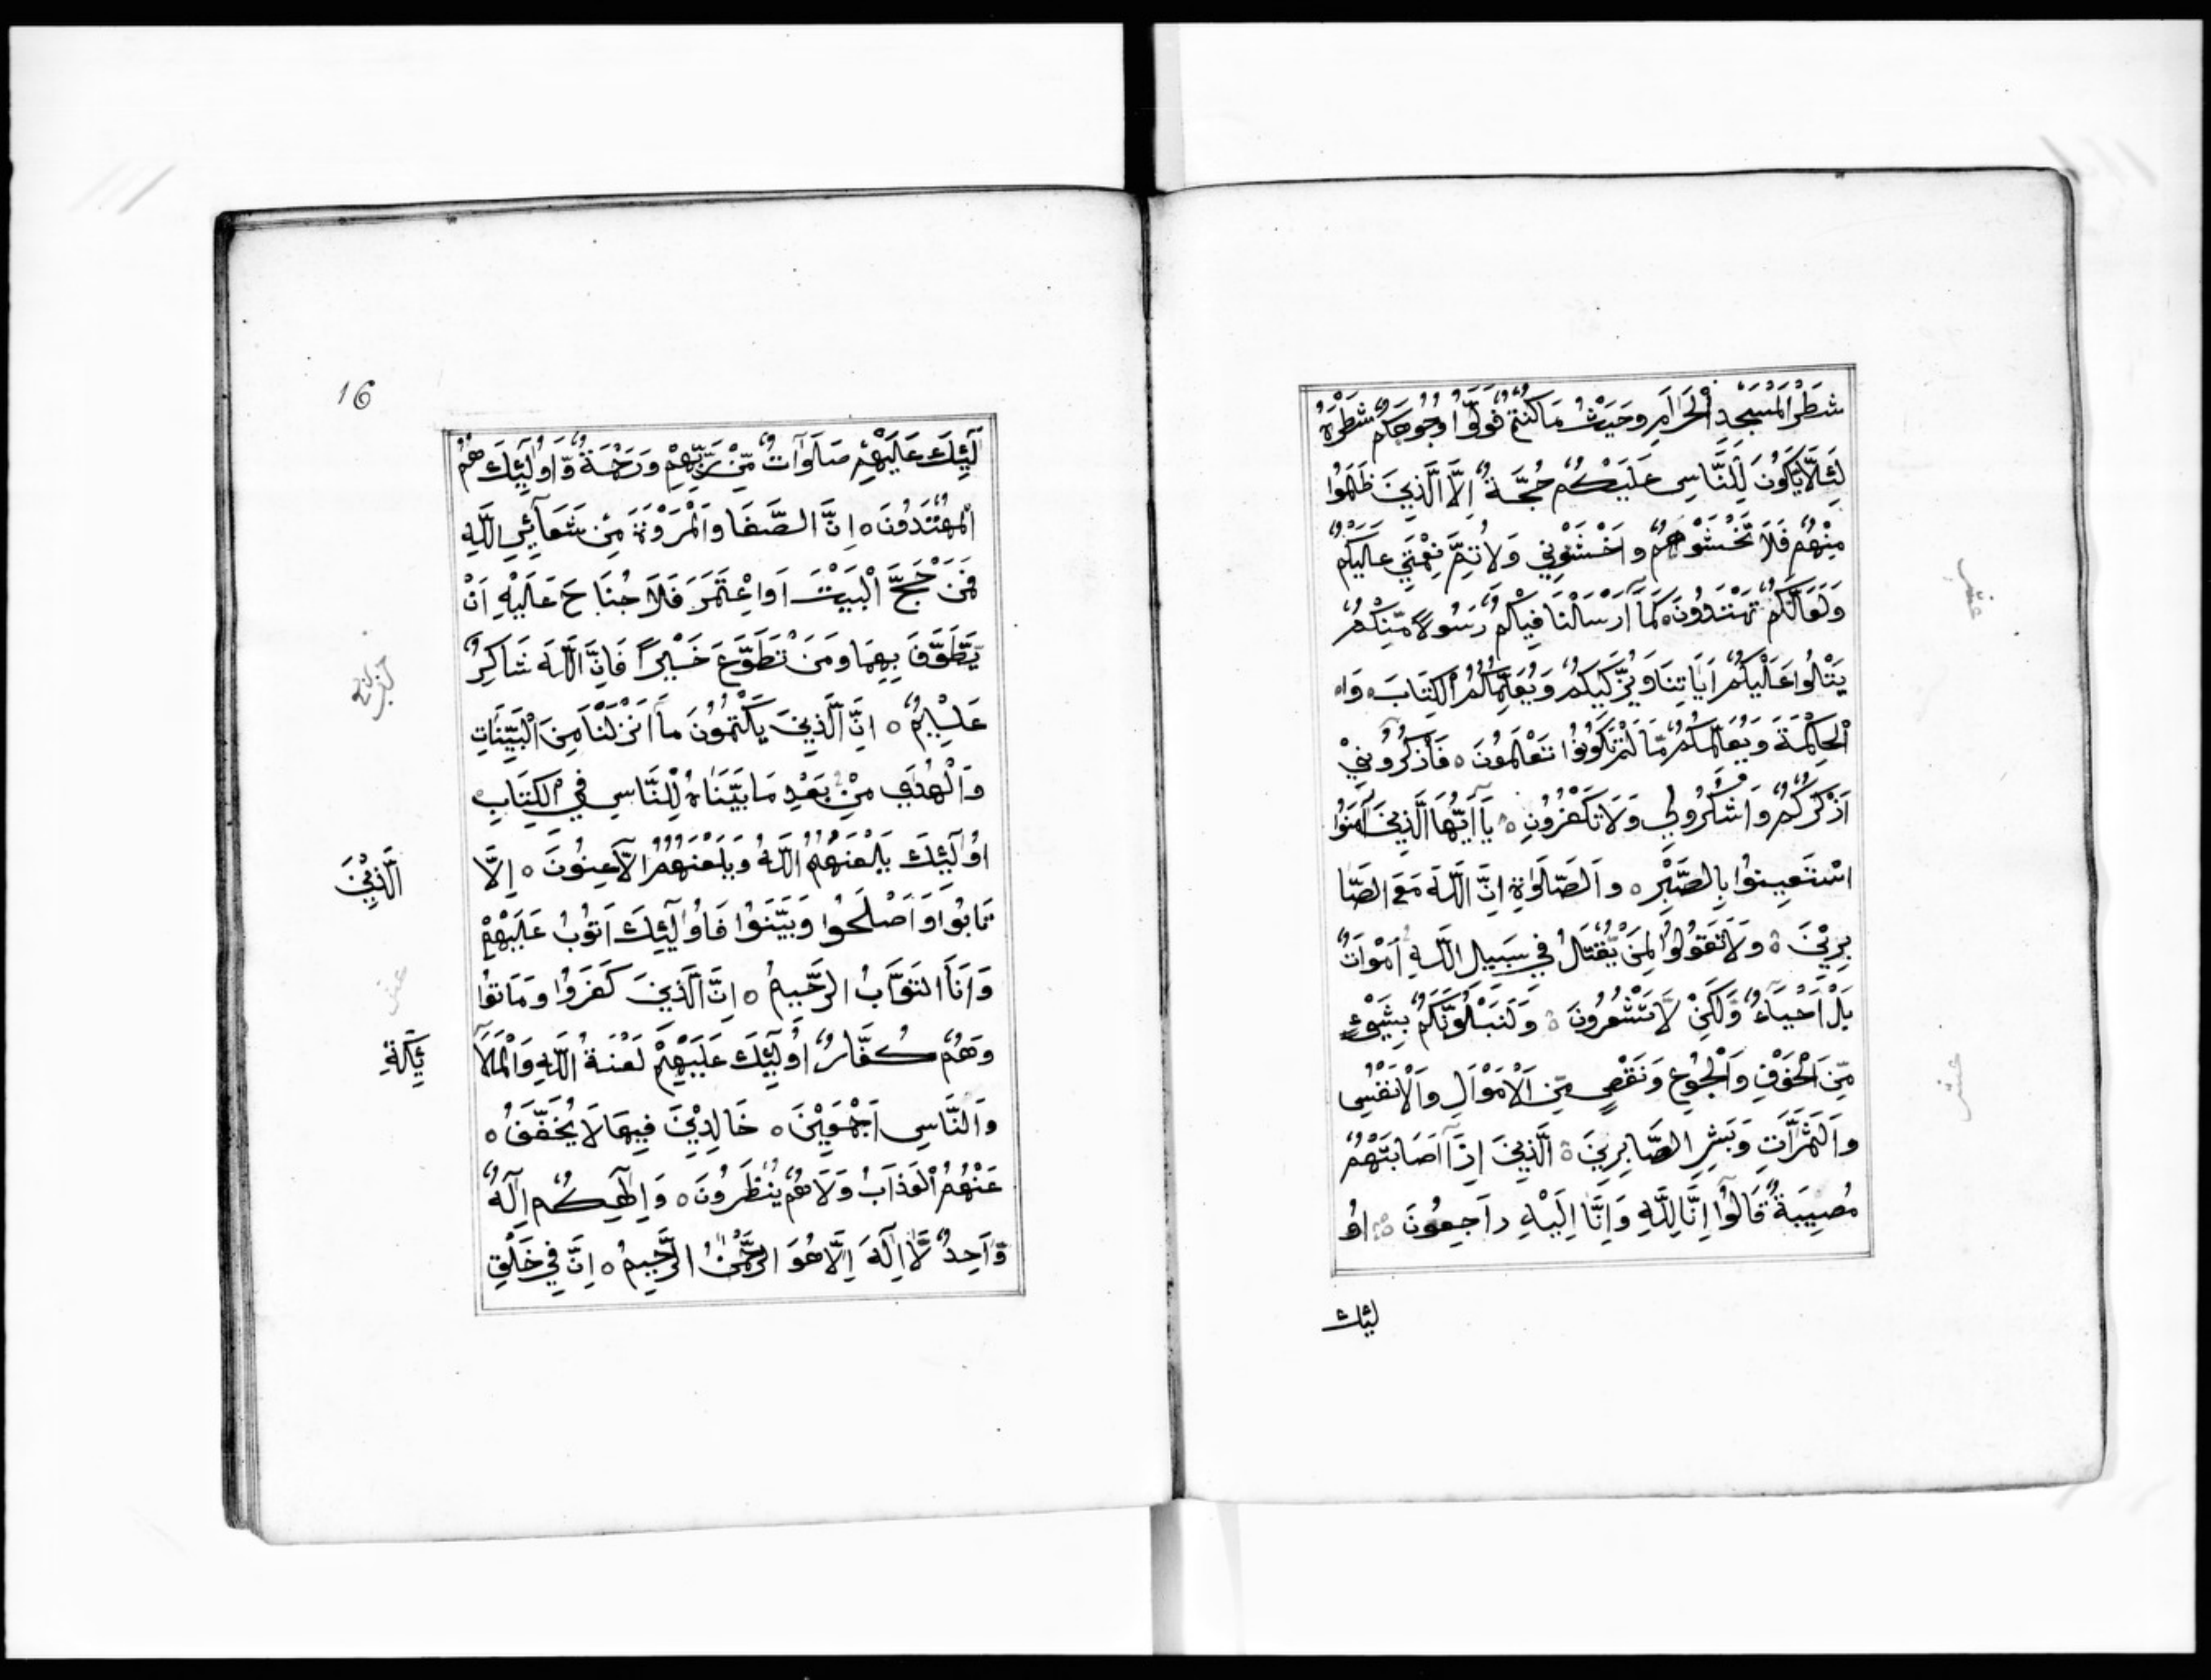 شَطْرَ الْمَسْجِدِ الْحَرَامِ وَحَيْثُ مَا كُنْتُمْ فَوَلُّوا وُجُوهَكُمْ شَطْرَهُ
لِئَلَّا يَكُونَ لِلنَّاسِ عَلَيْكُمْ حُجَّةٌ اِلَّا الَّذِينَ ظَلَمُوا
مِنْهُمْ فَلَا تَخْشَوْهُمْ وَاخْشَوْنِي وَلِاُتِمَّ نِعْمَتِي عَلَيْكُمْ
وَلَعَلَّكُمْ تَهْتَدُونَ ه كَمَا اَرْسَلْنَا فِيكُمْ رَسُولًا مِّنْكُمْ
يَتْلُوا عَلَيْكُمْ اٰيَاتِنَا وَيُزَكِّيكُمْ وَيُعَلِّمُكُمُ الْكِتَابَ ه وَا
الْحِكْمَةَ وَيُعَلِّمُكُمْ مَّا لَمْ تَكُونُوا تَعْلَمُونَ ه فَاذْكُرُونِيْ
اَذْكُرْكُمْ وَاشْكُرُولِي وَلَا تَكْفُرُونِ ه يَآ اَيُّهَا الَّذِينَ آمَنُوا
اسْتَعِينُوا بِالصَّبْرِ ه وَالصَّلَوٰةِ اِنَّ اللّٰهَ مَعَ الصَّا
بِرِيْنَ ه وَلَا تَقُولُوا لِمَنْ يُّقْتَلُ فِي سَبِيلِ اللّٰهِ اَمْوَاتٌ
بَلْ اَحْيَآءٌ وَّلٰكِنْ لَّا تَشْعُرُونَ ه وَلَنَبْلُوَنَّكُمْ بِشَيْءٍ
مِّنَ الْخَوْفِ وَالْجُوعِ وَنَقْصٍ مِّنَ الْاَمْوَالِ وَالْاَنْفُسِ
وَالثَّمَرَاتِ وَبَشِّرِ الصَّابِرِينَ ه الَّذِينَ اِذَآ اَصَابَتْهُمْ
مُصِيبَةٌ قَالُوآ اِنَّا لِلّٰهِ وَاِنَّا اِلَيْهِ رَاجِعُونَ ه اُو
لئك
16
لٰٓئِكَ عَلَيْهِمْ صَلَوَاتٌ مِّنْ رَّبِّهِمْ وَرَحْمَةٌ وَّاُولٰٓئِكَ هُمُ
الْمُهْتَدُونَ ه اِنَّ الصَّفَا وَالْمَرْوَةَ مِنْ شَعَآئِرِ اللّٰهِ
فَمَنْ حَجَّ الْبَيْتَ اَوِ اعْتَمَرَ فَلَا جُنَاحَ عَلَيْهِ اَنْ
يَّطَّوَّفَ بِهِمَا وَمَنْ تَطَوَّعَ خَيْرًا فَاِنَّ اللّٰهَ شَاكِرٌ
عَلِيْمٌ ه اِنَّ الَّذِينَ يَكْتُمُونَ مَا اَنْزَلْنَا مِنَ الْبَيِّنَاتِ
وَالْهُدٰى مِنْ بَعْدِ مَا بَيَّنَاهُ لِلنَّاسِ فِي الْكِتَابِ
اُولٰٓئِكَ يَلْعَنُهُمُ اللّٰهُ وَيَلْعَنُهُمُ الْلَّاعِنُونَ ه اِلَّا
الَّذِيْنَ
تَابُوا وَاَصْلَحُوا وَبَيَّنُوا فَاُولٰٓئِكَ اَتُوْبُ عَلَيْهِمْ
وَاَنَا التَّوَّابُ الرَّحِيمُ ه اِنَّ الَّذِينَ كَفَرُوا وَمَاتُوا
وَهُمْ كُفَّارٌ اُولٰٓئِكَ عَلَيْهِمْ لَعْنَةُ اللّٰهِ وَالْمَلَآ
ئِكَةِ
وَالنَّاسِ اَجْمَعِيْنَ ه خَالِدِيْنَ فِيهَا لَا يُخَفَّفُ ه
عَنْهُمُ الْعَذَابُ وَلَا هُمْ يُنْظَرُونَ ه وَاِلٰهُكُمْ اِلٰهٌ
وَّاحِدٌ لَّآ اِلٰهَ اِلَّا هُوَ الرَّحْمٰنُ الرَّحِيمُ ه اِنَّ فِي خَلْقِ